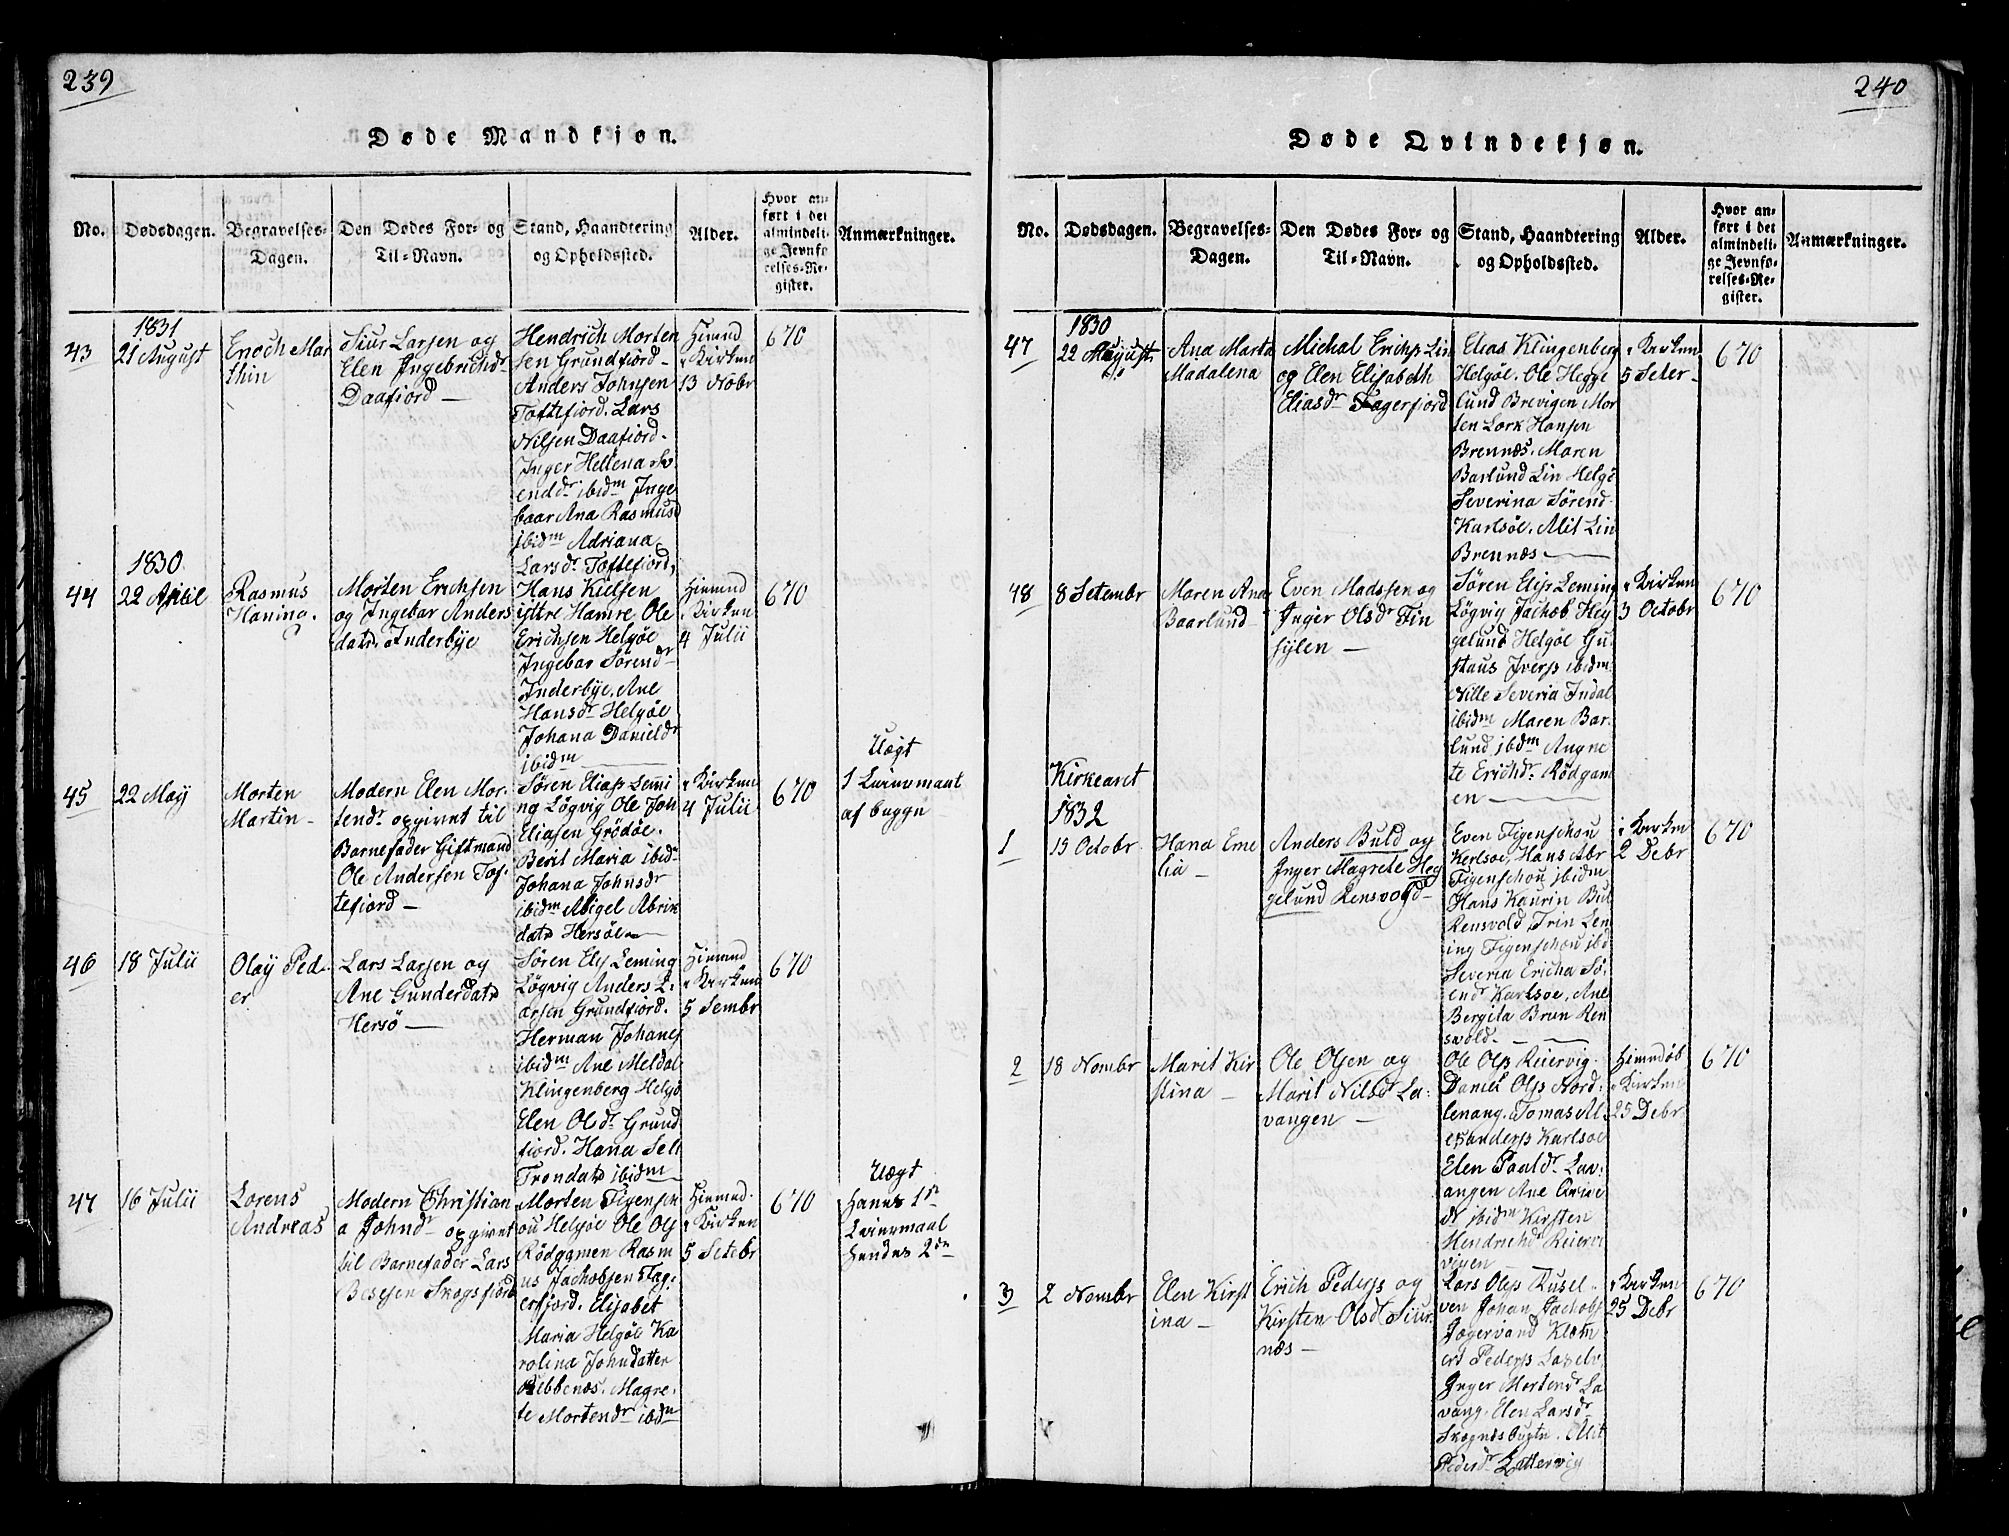 239
Døde Mandkjøn.
No.
Dødsdagen.
Begravelses-
Dagen.
Den Dødes For- og
Til-Navn.
Stand, Haandtering
og Opholdssted.
Alder.
Hvor an-
ført i det
almindeli-
ge Jevnfø-
relses-Re-
gister.
Anmærkninger.
43
1831
21 August
Enoch Mar
thin
Siur Larsen og
Elen Ingebrichtdr
Daafiord
Hendrich Morten
sen Grundfiord
Anders Johnsen
Toftefiord. Lars
Nilsen Daafiord.
Inger Hellena Sv
enddr ibidm Inge
baar Ana Rasmusd
ibidm Adriana
Larsdr Toftefiord
Hiemd
i Kirken
13 Nobr
670
44
1830
22 April
Rasmus
Hanina.
Morten Erichsen
og Ingebar Anders
datr. Inderbye
Hans Kielsen
ittre Hamre, Ole
Erichsen Helgøe
Ingebar Sørendr
Inderbye. Ane
Hansdr Helgøe
Johana Danieldr
ibidm
Hiemd
i Kirken
4 Julii
670
45
22 May
Morten
Martin
Modern Elen Mor-
tendr opgivet til
Barnefader Giftmand
Ole Andersen Tof-
tefiord
Søren Eliass Lemi
ng Løgvig Ole Joh
Eliasen Grödøe.
Berit Maria ibid
Johana Johnsdr
ibidm Abigel Abrik
datr Hersöe
i Kirken
4 Julii
670
Uægt
1 Leiermaal
af begge
46
18 Julii
Olay Ped-
er
Lars Larsen og
Ane Gunderdatr
Hersö
Søren Elis Leming
Løgvig Anders L-
arsen Grundfiord.
Herman Johanes
ibidm Ane Meldal
Klingenberg Helgö
Elen Olsdr Grund
fiord. Hana Seli
Trondatr ibidm
Hiemd
i Kirken
5 Sembr
670
47
16 Julii
Lorens
Andreas
Modern Christian
a Johndr opgivet
til Barnefader Lars
Besesen Skogsfiord
Morten Figensch
ou Helgøe Ole Ols
Rödgamen Rasm
us Jachobsen Fag-
erfjord. Elisabet
Maria Helgøe Ka
rolina Johndatter
Ribbenæs. Magre-
te Mortendr ibdm
Hiemd.
i Kirken
5 Setebr
670
Uægt
Hanes 1ste
Leiermaal
Hendes 2den
240
Døde Qvindekjøn.
No.
Dødsdagen.
Begravelses-
Dagen.
Den Dødes For- og
Til-Navn.
Stand, Haandtering
og Opholdssted.
Alder.
Hvor an-
ført i det
almindeli-
ge Jevnfø-
relses-Re-
gister.
Anmærkninger.
47
1830
22 August
Ana Marta
Madalena
Michal Erichs Lin
og Elen Elisabeth
Eliasdr Fagerfiord
Elias Klingenberg
Helgøe. Ole Hegge
lund Brevigen Mor
ten Lork Hansen
Brennæs. Maren
Barlund Lin Helgø
Severina Sørend
Karlsöe. Alit Lin
Brennæs
i Kirken
5 Seter
670
48
8 Setembr
Maren Ana
Baarlund
Even Madssen og
Inger Olsdr Fin
hylen
Søren Elis Leming
Løgvig Jachob Heg
gelund Helgøe Gu-
staus Ivers ibidm
Nille Severia Indal
ibidm Maren Bar-
lund ibdm Angne
te Erichdr Rödgam
en
i Kirken
3 Octobr
670
Kirkearet
1832
1
15 Octobr
Hana Eme
lia
Anders Buld og
Inger Magrete Heg
gelund Rensvold
Even Figenschou
Kerlsoe, Hans Abr
Figenschou ibidm
Hans Kaurin Bul
Rensvold, Trin Len
ing Figenschou ibd
Severia Ericha Sö-
endr Karlsøe, Ane
Bergita Brun Ren
svold.
i Kirken
2 Debr
670
2
18 Nombr
Marit Kir
stina
Ole Olsen og
Marit Nilsdr La-
vangen
Ole Ols Reiervig.
Daniel Ols Nord-
lenang. Tomas Al-
exanders Karlsoe
Elen Paaldr Lav-
angen Ane
dr ibidm Kirsten
Hendrichdr Reiervi
vigen
Hiemdøb
i Kirken
25 Debr
670
3
2 Nombr
Elen Kirst
ina
Erich Peders og
Kirsten Olsdr Siur-
næs
Lars Oles Rusel-
ven Johan Jachobs
Jægervand Klem
ert Peders Laxelv
Inger Mortendr La
vang. Elen Larsdr
Skognæs bugtn. Alit
Pedersdr Lattervig
i Kirken
25 Debr
670